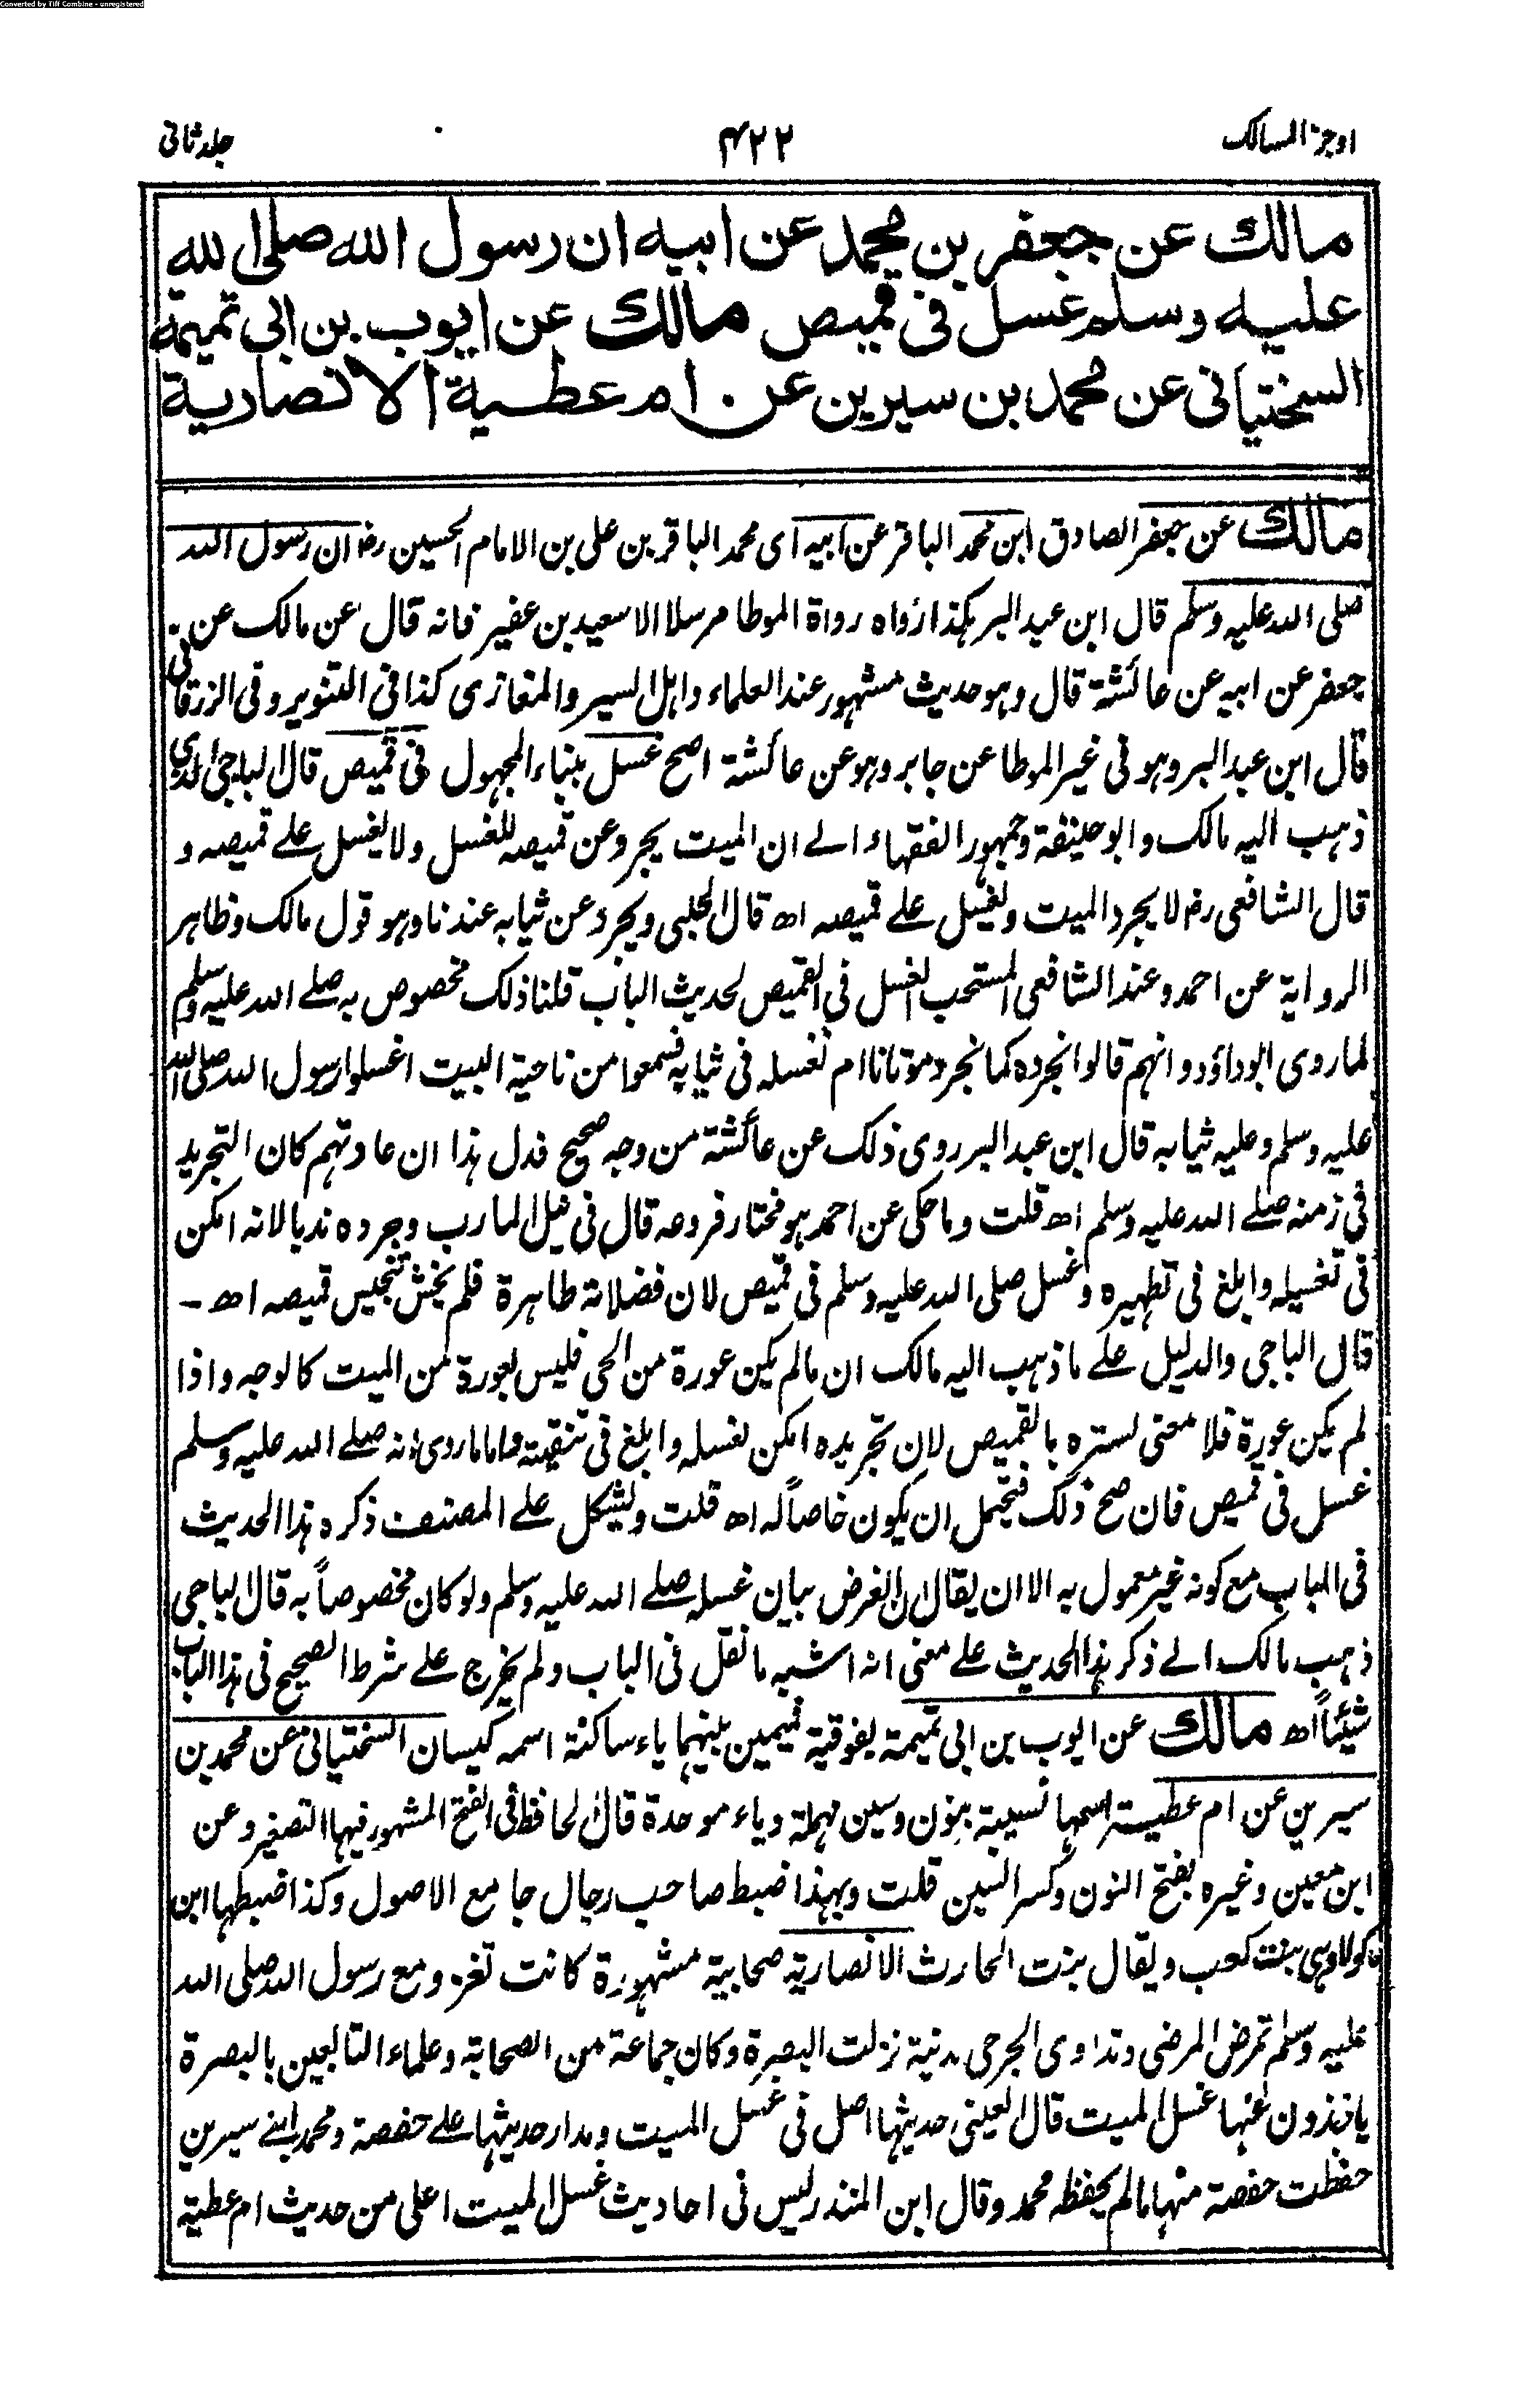 Converted by Tiff Combine - unregistered
اوجز المسالك ۴۲۲ جلد ثانی
مالك عن جعفر بن محمد عن ابيه ان رسول الله صلى الله
عليه وسلم غسل فى قميص مالك عن ايوب بن ابى تميمة
السختيانى عن محمد بن سيرين عن ام عطية الانصارية
مالك عن جعفر الصادق ابن محمد الباقر عن ابيه اى محمد الباقر بن على بن الامام الحسين رض ان رسول الله
صلى الله عليه وسلم قال ابن عبد البر هكذا رواه رواة الموطا مرسلا الا سعيد بن عفير فانه قال عن مالك عن
جعفر عن ابيه عن عائشة قال وهو حديث مشهور عند العلماء واهل السير والمغازى كذا فى التنوير وفى الزرقانى
قال ابن عبد البر وهو فى غير الموطا عن جابر وهو عن عائشة اصح غسل ببناء المجهول فى قميص قال الباجى الذى
ذهب اليه مالك وابو حنيفة وجمهور الفقهاء الے ان الميت يجرد عن قميصه للغسل ولا يغسل علے قميصه و
قال الشافعى رض لا يجرد الميت ويغسل علے قميصه اھ قال الحلبى ويجرد عن ثيابه عندنا وهو قول مالك وظاهر
الرواية عن احمد وعند الشافعى المستحب الغسل فى القميص لحديث الباب قلنا ذلك مخصوص به صلے الله عليه وسلم
لما روى ابو داؤد وانهم قالوا نجرده كما نجرد موتانا ام نغسله فى ثيابه فسمعوا من ناحية البيت اغسلوا رسول الله صلى الله
عليه وسلم وعليه ثيابه قال ابن عبد البر روى ذلك عن عائشة من وجه صحيح فدل هذا ان عادتهم كان التجريد
فى زمنه صلے الله عليه وسلم اھ قلت وما حكى عن احمد هو مختار فروعه قال فى نيل المارب وجرده ندبا لانه امكن
فى تغسيله وابلغ فى تطهيره وغسل صلى الله عليه وسلم فى قميص لان فضلاته طاهرة فلم يخش تنجيس قميصه اھ -
قال الباجى والدليل علے ما ذهب اليه مالك ان ما لم يكن عورة من الحى فليس بعورة من الميت كالوجه واذا
لم يكن عورة فلا معنى لستره بالقميص لان تجريده امكن لغسله وابلغ فى تنقيته واما ما روى انه صلے الله عليه وسلم
غسل فى قميص فان صح ذلك فيحتمل ان يكون خاصاً له اھ قلت ويشكل علے المصنف ذكره هذا الحديث
فى الباب مع كونه غير معمول به الا ان يقال ان الغرض بيان غسله صلے الله عليه وسلم ولو كان مخصوصاً به قال الباجى
ذهب مالك الے ذكر هذا الحديث علے معنى انه اشبه ما نقل فى الباب ولم يخرج علے شرط الصحيح فى هذا الباب
شيئاً اھ مالك عن ايوب بن ابى تميمة بفوقية فميمين بينهما ياء ساكنة اسمه كيسان السختيانى عن محمد بن
سيرين عن ام عطية اسمها نسيبة بنون وسين مهملة وباء موحدة قال الحافظ فى الفتح المشهور فيها التصغير وعن
ابن معين وغيره بفتح النون وكسر السين قلت وبهذا ضبط صاحب رجال جامع الاصول وكذا ضبطها ابن
ماكولا وهى بنت كعب ويقال بنت الحارث الانصارية صحابية مشهورة كانت تغزو مع رسول الله صلى الله
عليه وسلم تمرض المرضى وتداوى الجرحى مدنية نزلت البصرة وكان جماعة من الصحابة وعلماء التابعين بالبصرة
ياخذون عنها غسل الميت قال العينى حديثها اصل فى غسل الميت ومدار حديثها علے حفصة ومحمد ابنے سيرين
حفظت حفصة منها ما لم يحفظه محمد وقال ابن المنذر ليس فى احاديث غسل الميت اعلى من حديث ام عطية